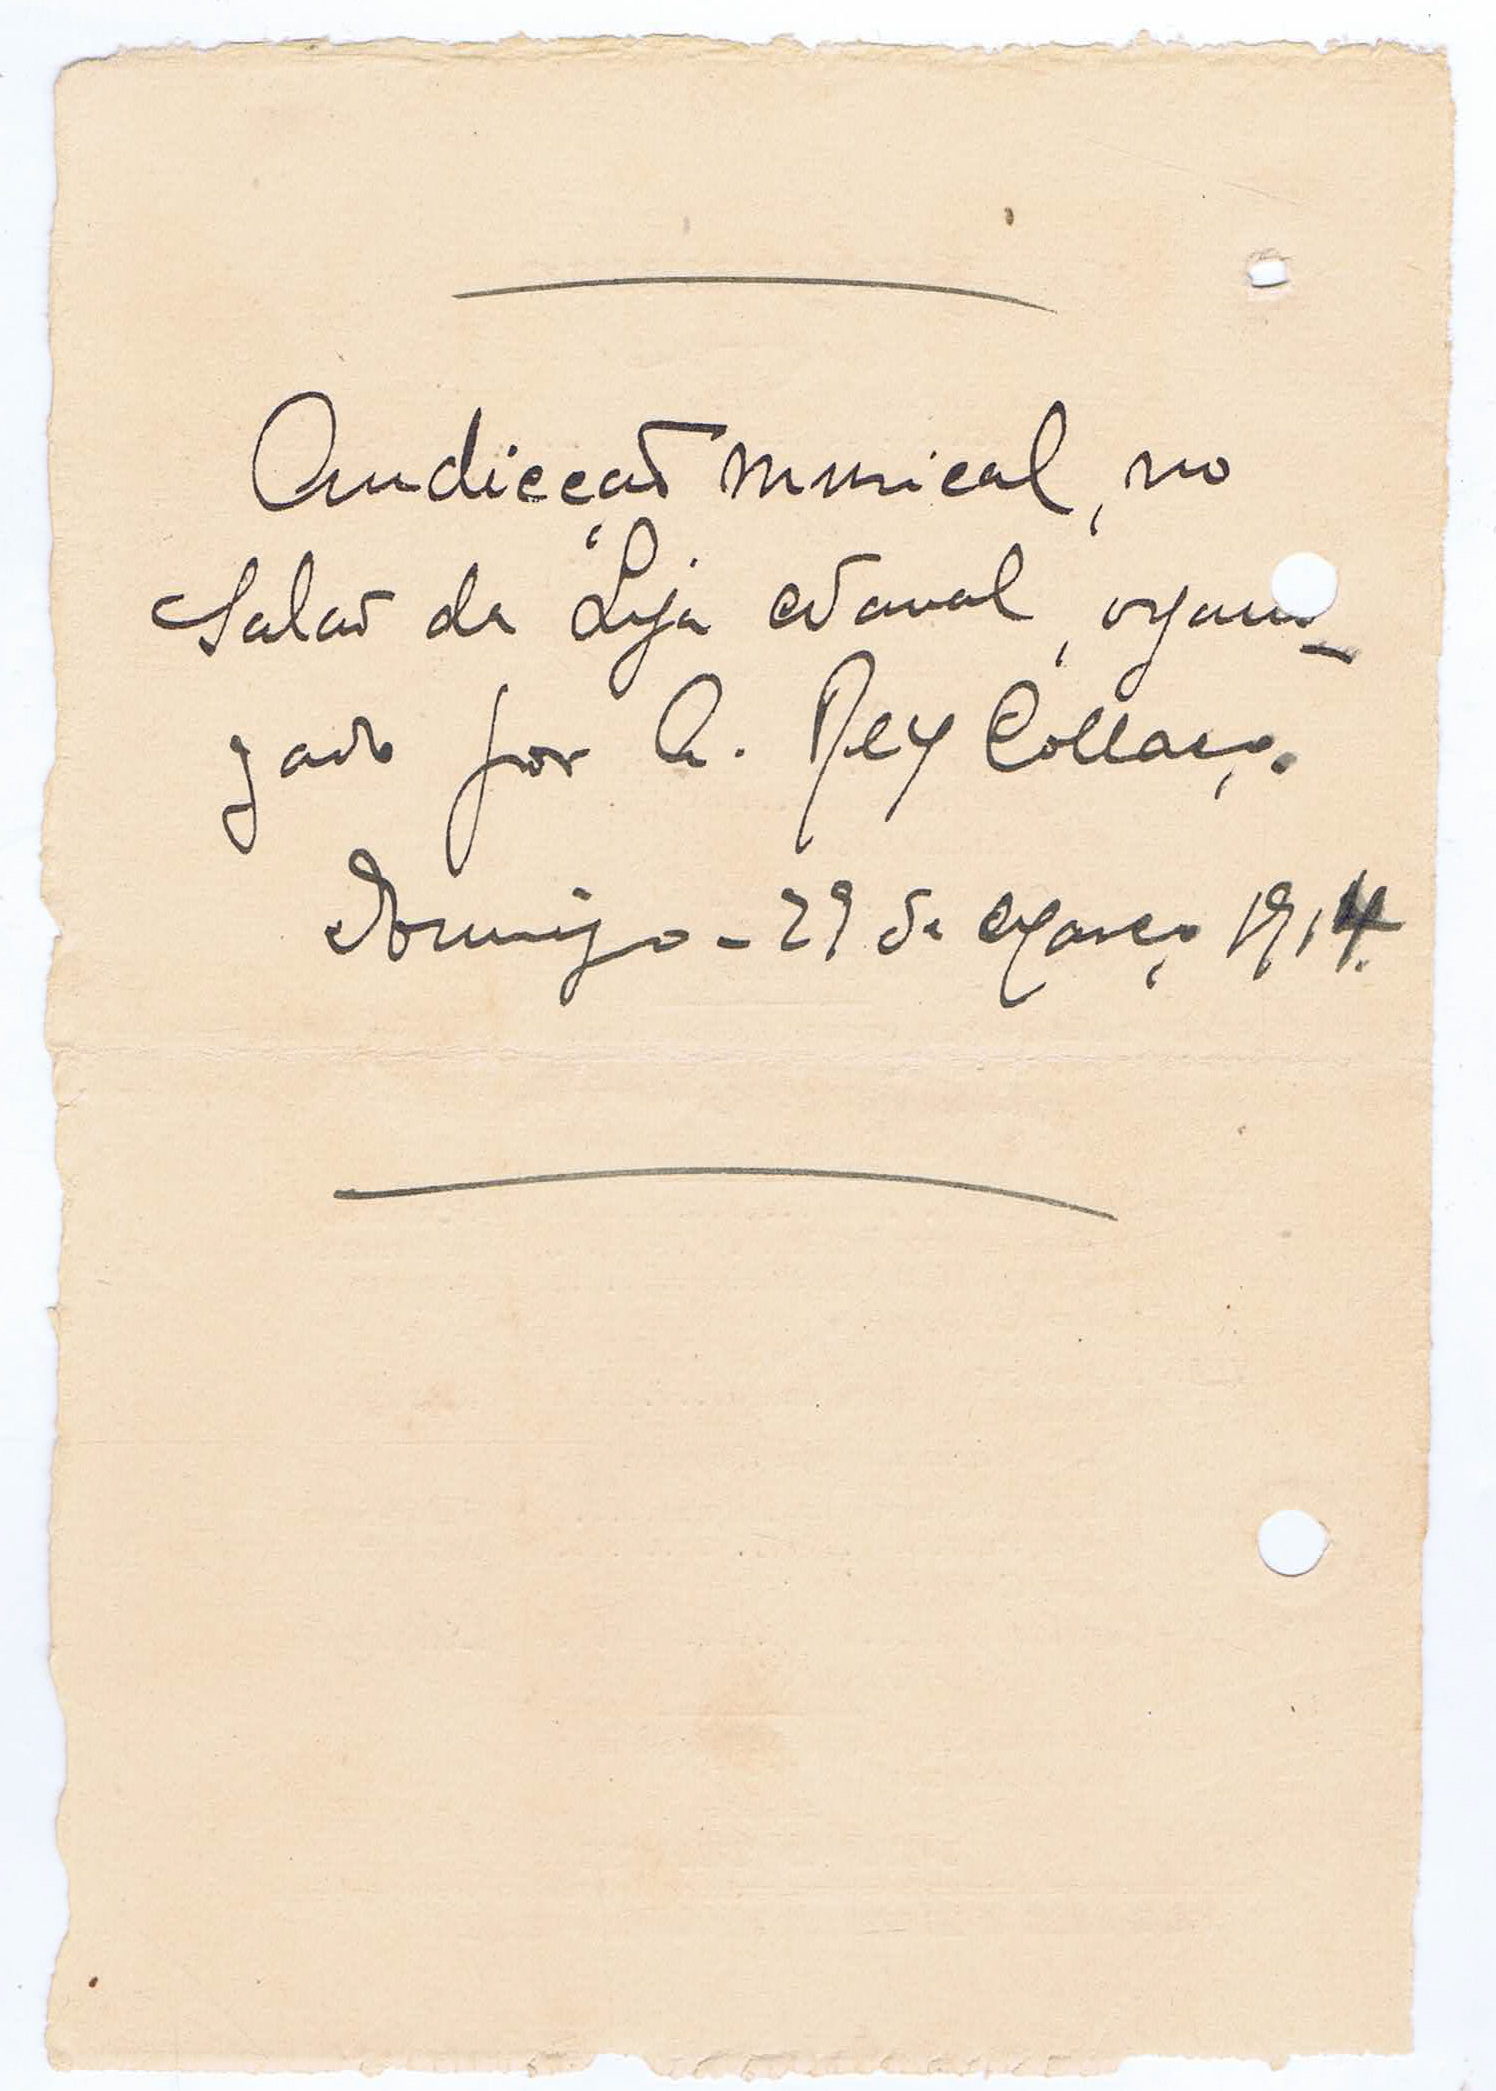 Audicção musical, no
Salão da Liga Naval, organi-
zado por A. Rey Collaço.
Domingo - 29 de Março 1914.